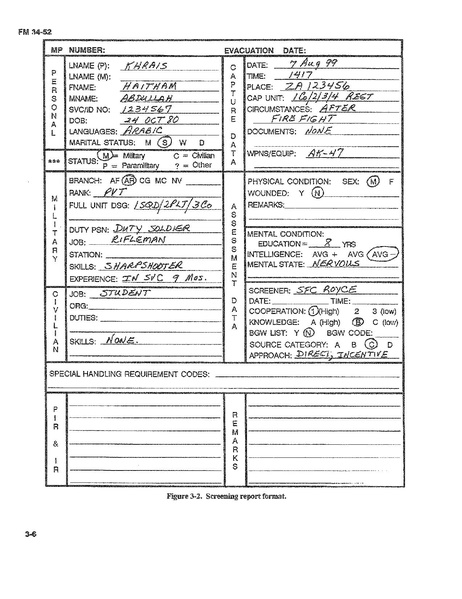 FM 34-52
MP NUMBER: EVACUATION DATE:
PERSONAL
LNAME (P): KHRAIS
LNAME (M):
FNAME: HAITHAM
MNAME: ABDULLAH
SVC/ID NO: 1234567
DOB: 24 OCT 80
LANGUAGES: ARABIC
MARITAL STATUS: M S W D
CAPTURE DATA
DATE: 7 Aug 99
TIME: 1417
PLACE: ZA 123456
CAP UNIT: 1Co/2/3/4 REGT
CIRCUMSTANCES: AFTER
FIRE FIGHT
DOCUMENTS: NONE
WPNS/EQUIP: AK-47
***
STATUS: M = Military C = Civilian
P = Paramilitary ? = Other
MILITARY
BRANCH: AF AR CG MC NV
RANK: PVT
FULL UNIT DSG: 1SQD/2PLT/3Co
DUTY PSN: DUTY SOLDIER
JOB: RIFLEMAN
STATION:
SKILLS: SHARPSHOOTER
EXPERIENCE: IN SVC 9 Mos.
ASSESSMENT DATA
PHYSICAL CONDITION: SEX: M F
WOUNDED: Y N
REMARKS:
MENTAL CONDITION:
EDUCATION = 8 YRS
INTELLIGENCE: AVG + AVG AVG -
MENTAL STATE: NERVOUS
SCREENER: SFC ROYCE
DATE: TIME:
COOPERATION: 1 (High) 2 3 (low)
KNOWLEDGE: A (High) B C (low)
BGW LIST: Y N BGW CODE:
SOURCE CATEGORY: A B C D
APPROACH: DIRECT, INCENTIVE
CIVILIAN
JOB: STUDENT
ORG:
DUTIES:
SKILLS: NONE.
SPECIAL HANDLING REQUIREMENT CODES:
PIR & IR
REMARKS
Figure 3-2. Screening report format.
3-6